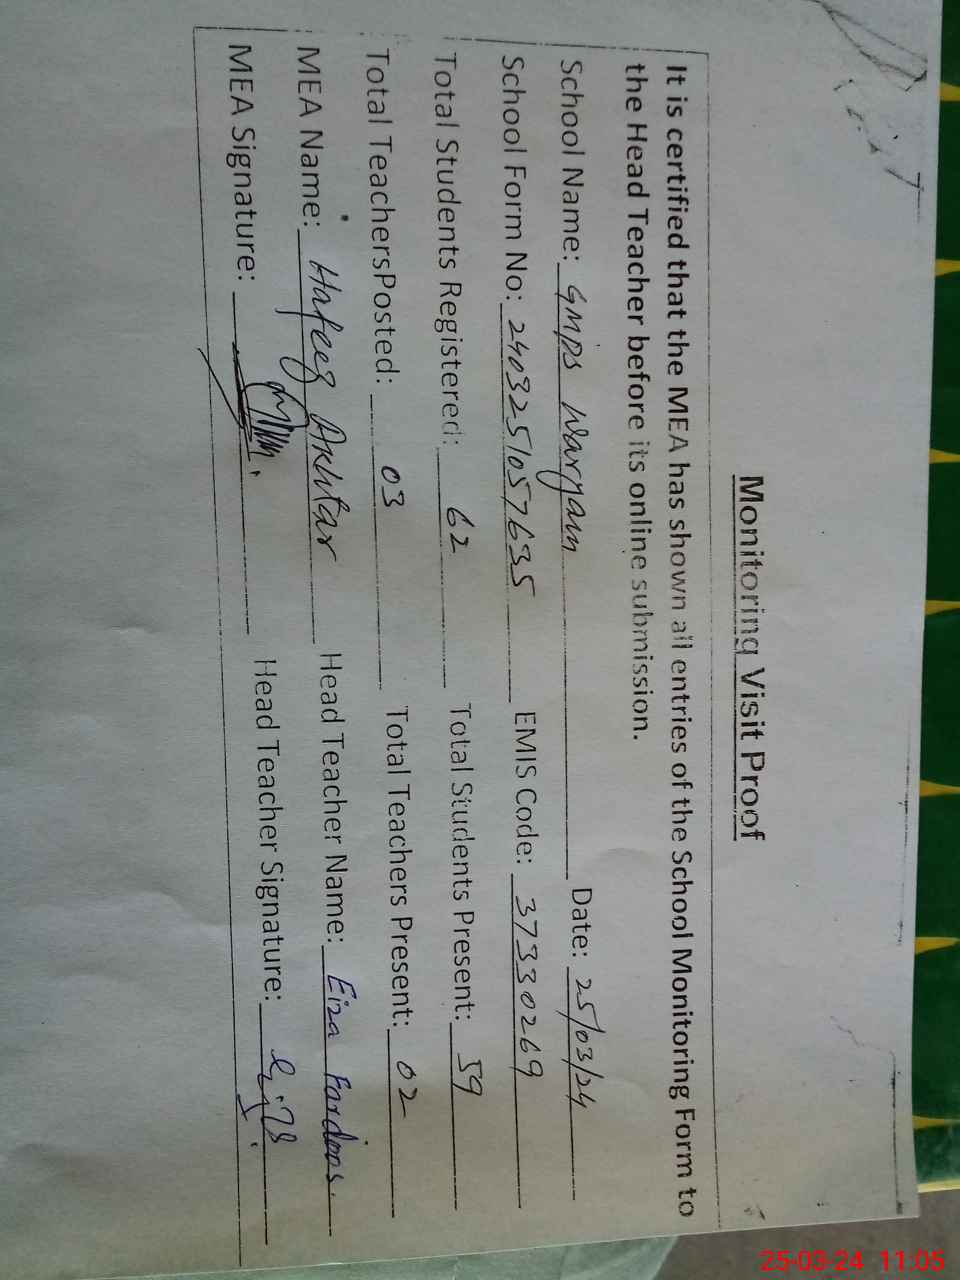 Monitoring Visit Proof
It is certified that the MEA has shown all entries of the School Monitoring Form to
the Head Teacher before its online submission.
School Name: GMPS Waryam Date: 25/03/24
School Form No: 240325/057635 EMIS Code: 37330269
Total Students Registered: 62 Total Students Present: 59
Total TeachersPosted: 03 Total Teachers Present: 02
MEA Name: Hafeez Akhtar Head Teacher Name: Eiza Fardoos.
MEA Signature: Head Teacher Signature:
25-03-24 11:05